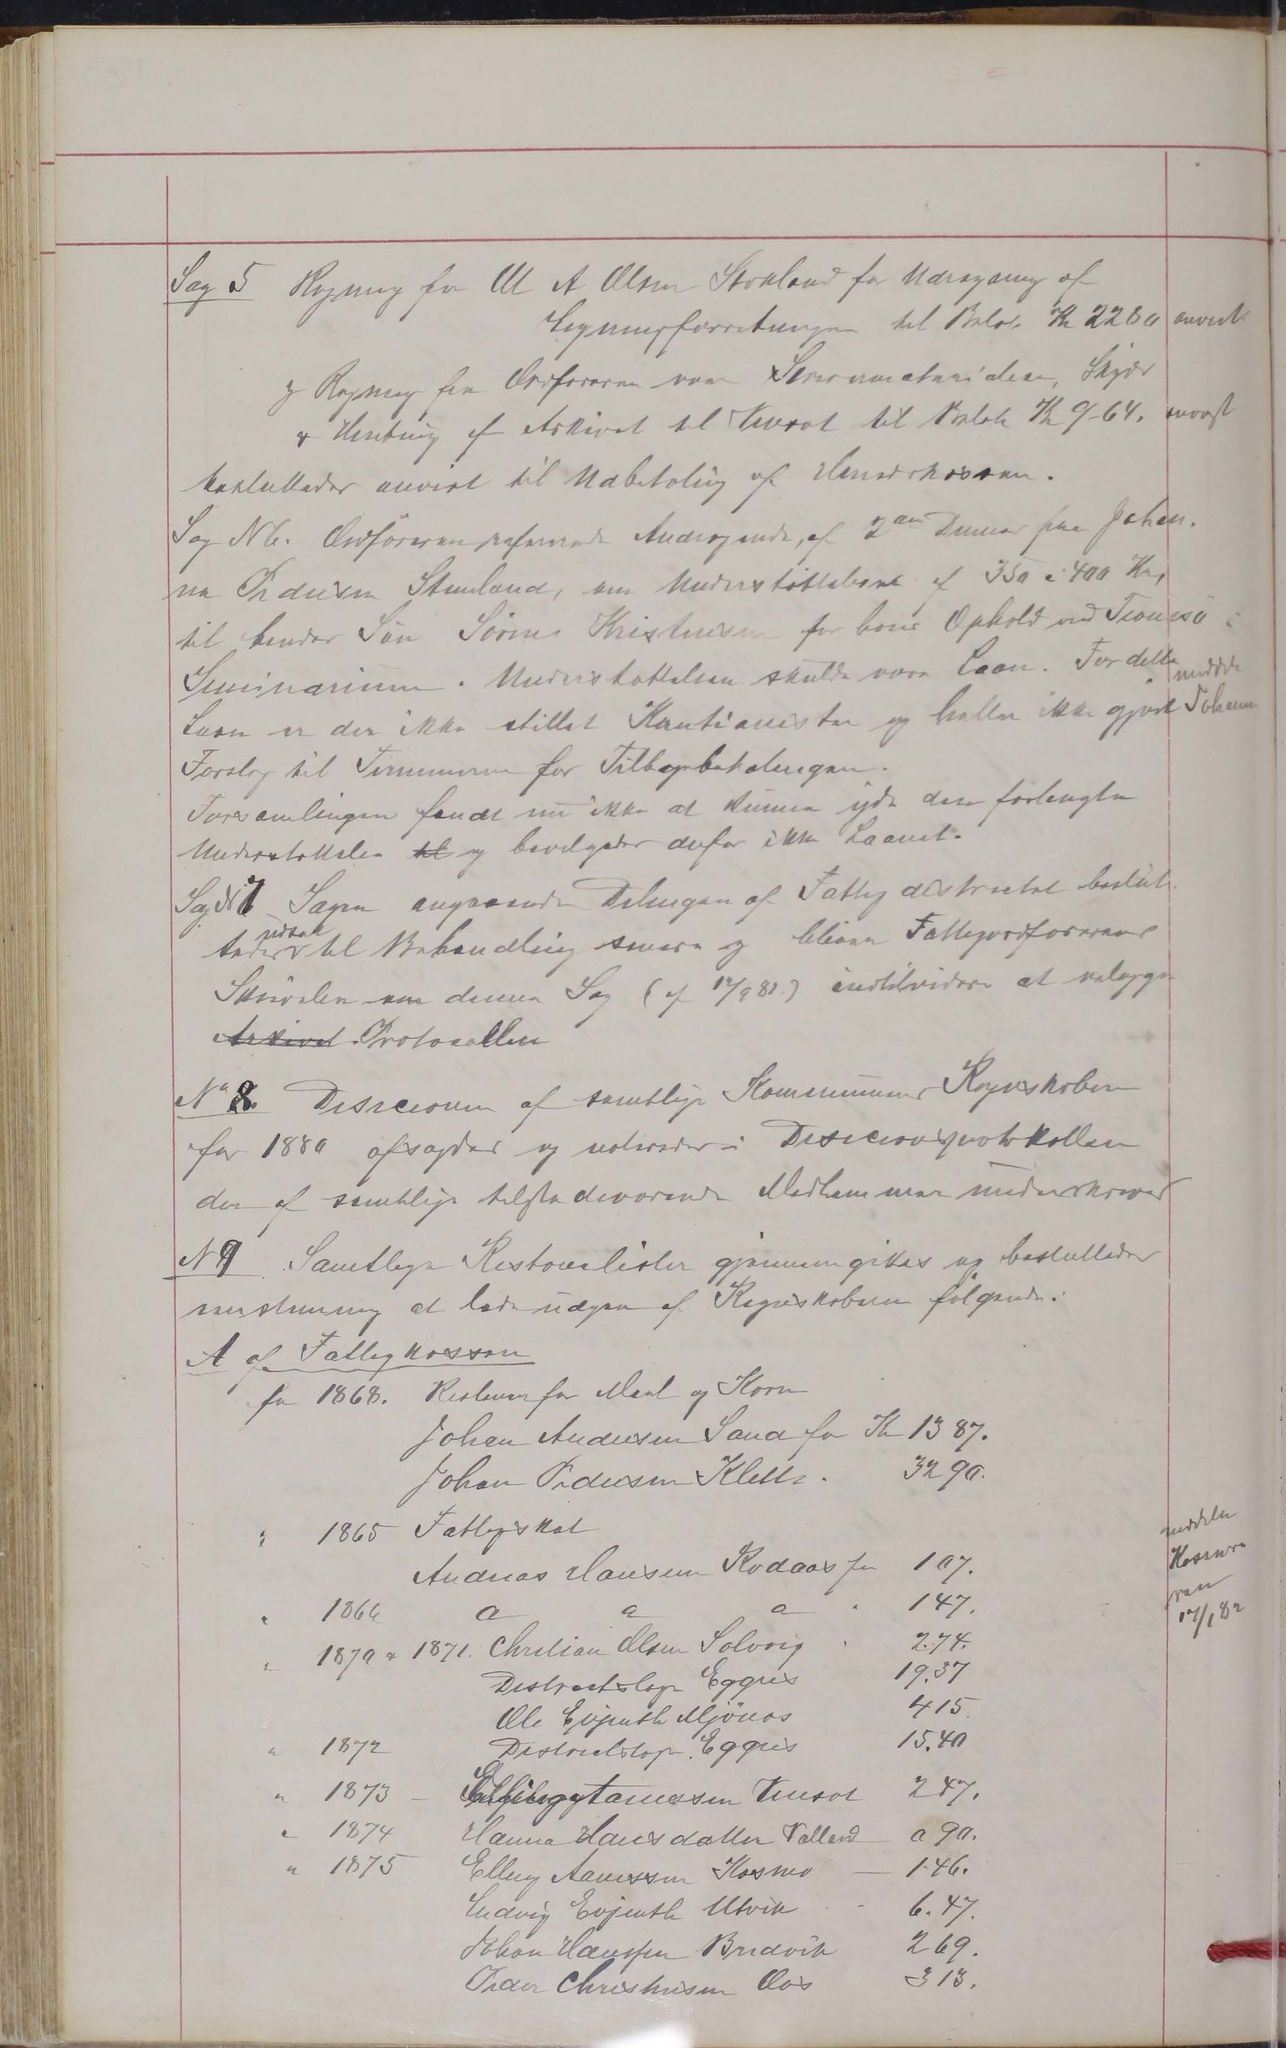 Sag 5 Regning fra Ol A Olsen Storland for Udregning af
Ligningsforretningen til Beløb Kr 22 80 anvist
og Regning fra Ordføreren over Skrivematerialier, Skyds
& Hentning af Arkivet til til Beløb Kr 9-64. anvist
besluttedes anvist til Udbetaling af Herredskassen.
Sag N 6. Ordføreren refererede Andragende, af 2den Dennes fra Johan-
na Pedersen Stenland, om Understøttelse af 350 a 400 Kr,
til hendes Søn Sören Kristensen for hans Ophold ved Tromsö
Seminarium. Understøttelsen skulde være Laan. For dette meddelt
Laan er der ikke stillet Kautionister og heller ikke gjort Johanna
Forslag til Terminerne for Tilbagebetalingen.
Forsamlingen fandt nu ikke at kunne yde den forlangte
Understøttelse til og bevilgedes derfor ikke Laanet.
Sag N 7 Sagen angaaende Delingen af Fattigdistrictet beslut-
tedes udsat til Behandling senere og bliver Fattigordförerens
Skrivelse om denne Sag (af 17/9 81.) indtilvidere at vedlægge
Arkivet Protocollen
No 8. Desicioner af samtlige Kommunens Regnskaber
for 1880 afsagdes og noteredes i Desicionsprotokollen
der af samtlige tilstedeværende Medlemmer underskreves
N 9 Samtlige Restancelister gjennemgikes og besluttedes
enstemmig at lade udgaa af Regnskaberne følgende:
A af Fattigkassen
for 1868. Restance for Meel og Korn
Johan Andersen Sand for Kr 13 87.
Johan Pedersen Klette. 32 90.
" 1865 Fattigskat
Andreas Hansen Rodaas for 1 07.
" 1866 a a a " 1 47.
" 1870 & 1871. Christian Olsen Solvig " 2.74.
Districtslæge Eggers 19.37
Ole Evjenth Mjönes 4 15.
" 1872 Districtslæge Eggers 15.40
" 1873 — 2 47.
" 1874 Hanna Hansdatter — 0 90.
" 1875 Elling Aanessen Kosmo — 1.46.
Ludvig Evjenth Utvik " 6.47.
Johan Hanssen Bredvik 2 69.
Peder Christensen Oos 3 13.
meddelt
Kassereren
17/1 82